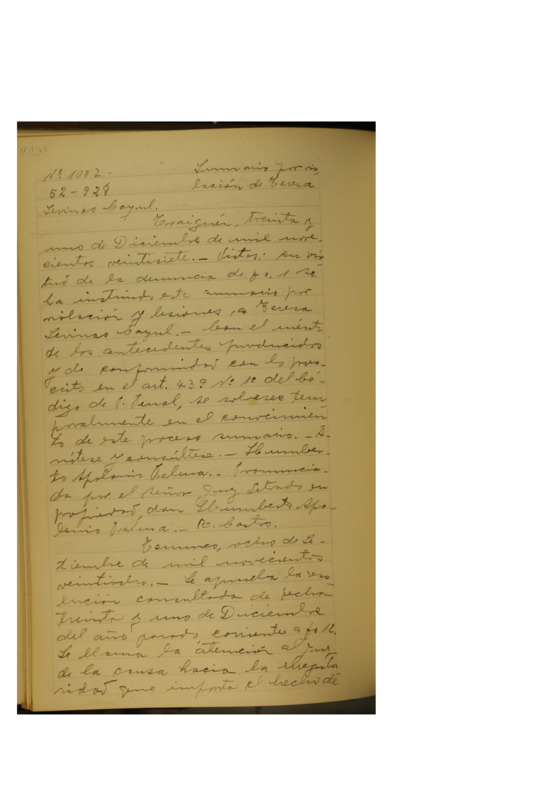 Nº 1002 - Sumario por vio
52-928 lación de Teresa
Levinao Cayul.
Traiguén, treinta y
uno de Diciembre de mil nove-
cientos veintisiete. - Vistos: en vir
tud de la denuncia de fs. 1 se
ha instruido este sumario por
violación y lesiones, a Teresa
Levinao Cayul. - Con el mérito
de los antecedentes producidos
y de conformidad con lo pres-
crito en el art. 439 Nº 1º del Có-
digo de P. Penal, se sobresee tem
poralmente en el conocimien
to de este proceso sumario. - A-
nótese y consúltese. - Humber-
to Apolonio Valena. - Pronuncia-
da por el señor Juez Letrado en
propiedad, don Humberto Apo-
lonio Valena. - R. Castro.
Temuco, ocho de Se-
tiembre de mil novecientos
veintiocho. - Se aprueba la reso
lución consultada de fecha
treinta y uno de Diciembre
del año pasado, corriente a fs 12.
Se llama la atención al Juez
de la causa hacia la irregula
ridad que importa el hecho de